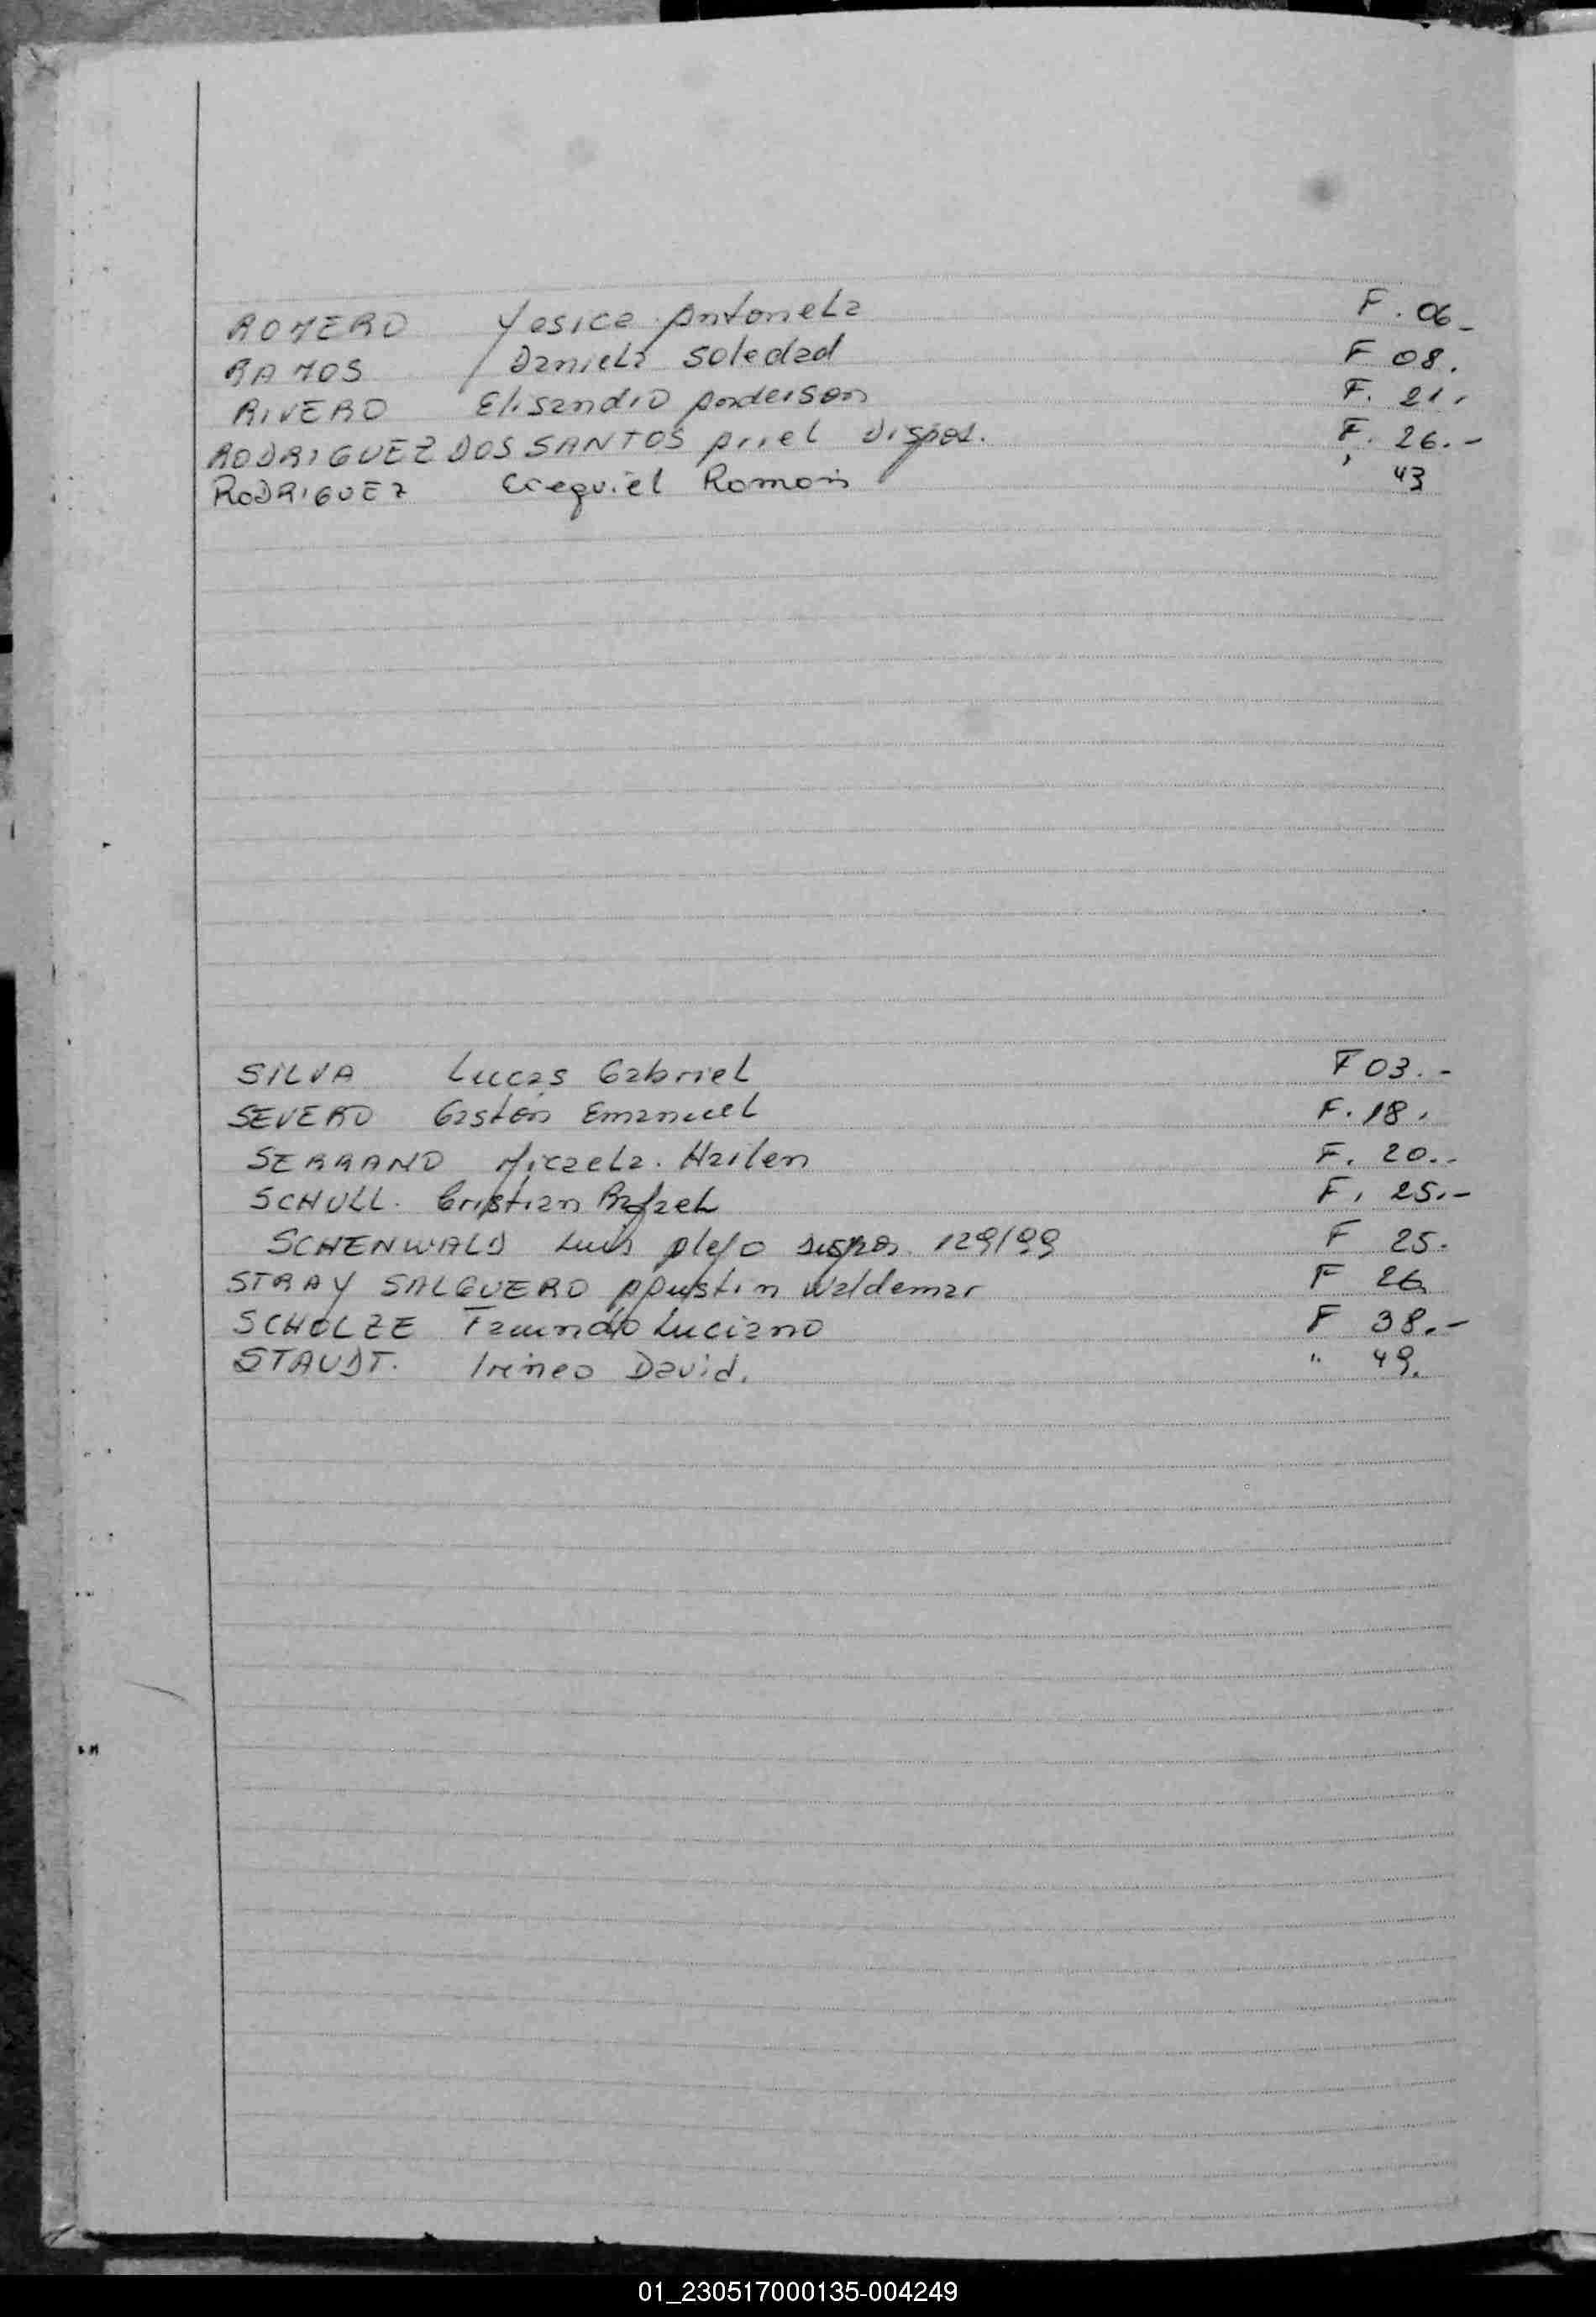 ROMERO Yesica Antonela F. 06-
RAMOS Daniela Soledad F 08.
RIVERO Elisandro Anderson F. 21.
RODRIGUEZ DOS SANTOS Ariel Dispos. F. 26.-
RODRIGUEZ Ezequiel Román " 43
SILVA Lucas Gabriel F 03.-
SEVERO Gastón Emanuel F. 18.
SERRANO Micaela. Hailen F. 20.-
SCHULL. Cristian Rafael F. 25.-
SCHENWALD Luis Alejo dispos. 129/99 F 25.
STRAY SALGUERO Agustin Waldemar F 26
SCHOLZE Facundo Luciano F 38.-
STAUDT. Irineo David. " 49.
01_230517000135-004249